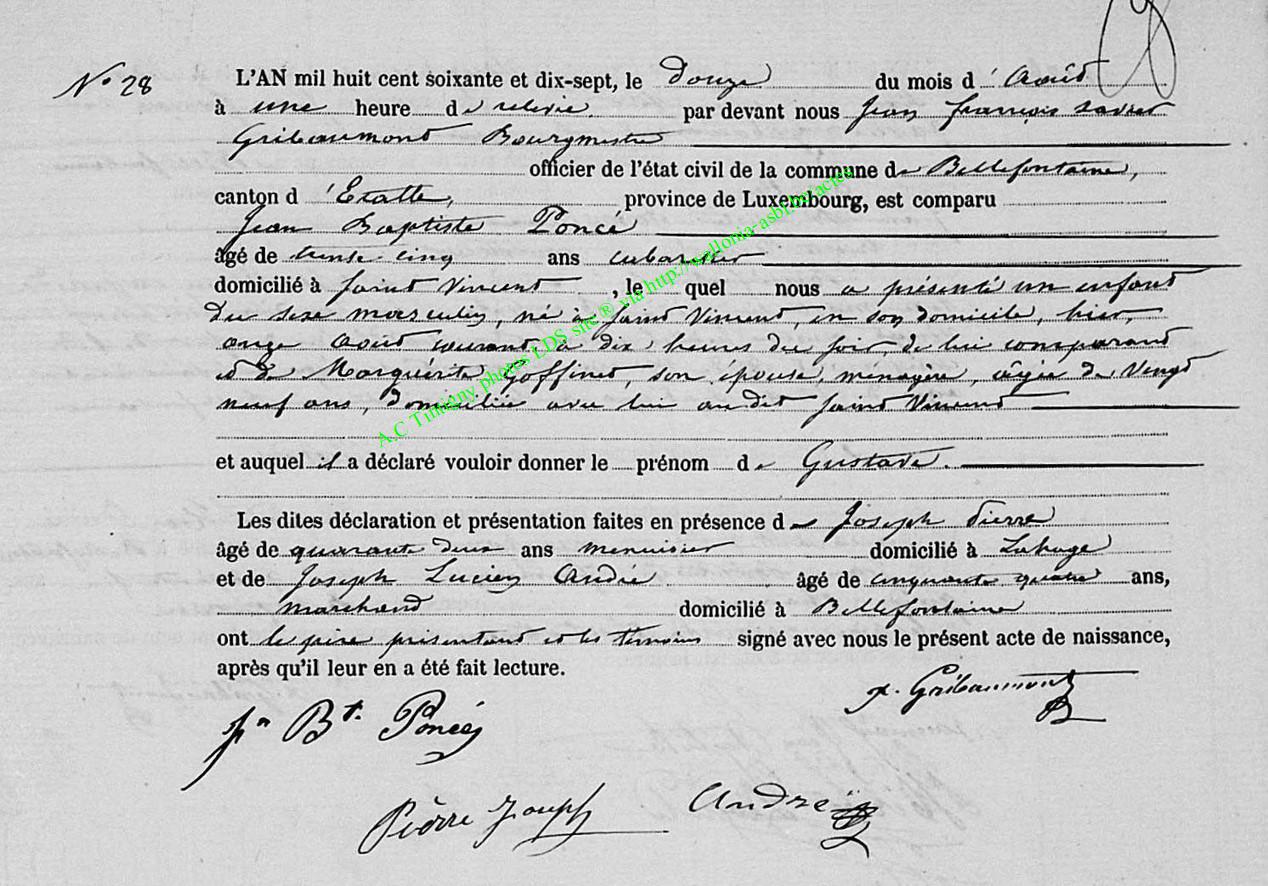 N° 28
L'AN mil huit cent soixante et dix-sept, le Douze du mois d'Août
à une heure de relevée par devant nous Jean françois xavier
Gribaumont Bourgmestre
officier de l'état civil de la commune de Bellefontaine,
canton d'Etalle, province de Luxembourg, est comparu
Jean Baptiste Poncé
âgé de trente cinq ans cabaretier
domicilié à Saint Vincent, le quel nous a présenté un enfant
du sexe masculin, né à Saint Vincent, en son domicile, hier,
onze Août courant, à dix heures du soir, de lui comparant
et de Marguérite Goffinet, son épouse, ménagère, âgée de Vingt
neuf ans, domiciliée avec lui au dit Saint Vincent
et auquel il a déclaré vouloir donner le prénom de Gustave.
Les dites déclaration et présentation faites en présence de Joseph Pierre
âgé de quarante deux ans menuisier domicilié à Lahage
et de Joseph Lucien André âgé de cinquante quatre ans,
marchand domicilié à Bellefontaine
ont le père présentant et les témoins signé avec nous le présent acte de naissance,
après qu'il leur en a été fait lecture.
x. Gribaumont
Jn Bte. Poncé
Pièrre Joseph André
A.C Tintigny photos LDS sur ® via http://wallonia-asbl.be/actes